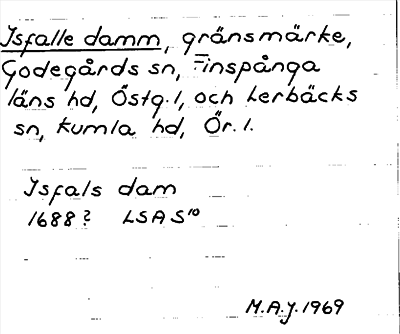 Isfalle damm, gränsmärke,
Godegårds sn, Finspånga
läns hd, Östg. l, och Lerbäcks
sn, Kumla hd, Ör. l.
Isfals dam
1688? LSA S¹⁰
M.A.J. 1969